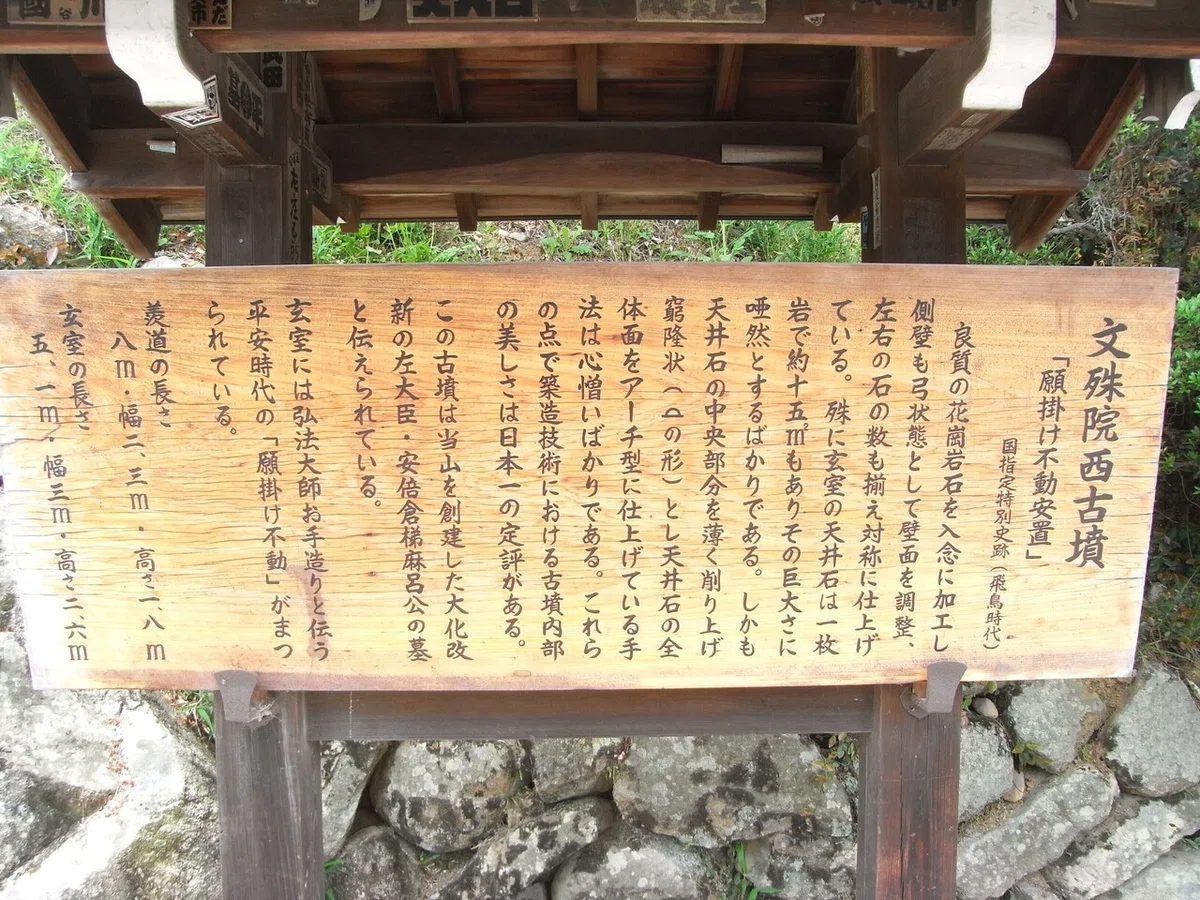 文殊院西古墳
「願掛け不動安置」
国指定特別史跡(飛鳥時代)
良質の花崗岩石を入念に加工し
側壁も弓状態として壁面を調整、
左右の石の数も揃え対称に仕上げ
ている。殊に玄室の天井石は一枚
岩で約十五㎡もありその巨大さに
唖然とするばかりである。しかも
天井石の中央部分を薄く削り上げ
窮隆状(⌓の形)とし天井石の全
体面をアーチ型に仕上げている手
法は心憎いばかりである。これら
の点で築造技術における古墳内部
の美しさは日本一の定評がある。
この古墳は当山を創建した大化改
新の左大臣・安倍倉梯麻呂公の墓
と伝えられている。
玄室には弘法大師お手造りと伝う
平安時代の「願掛け不動」がまつ
られている。
羨道の長さ
八m・幅二、三m・高さ一、八m
玄室の長さ
五、一m・幅三m・高さ二、六m